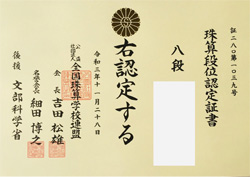 証二八〇第一〇三九号
珠算段位認定証書
八段
右認定する
令和三年十一月二十八日
公益社団法人 全国珠算学校連盟
会長 吉田松雄
名誉会長 細田博之
後援 文部科学省